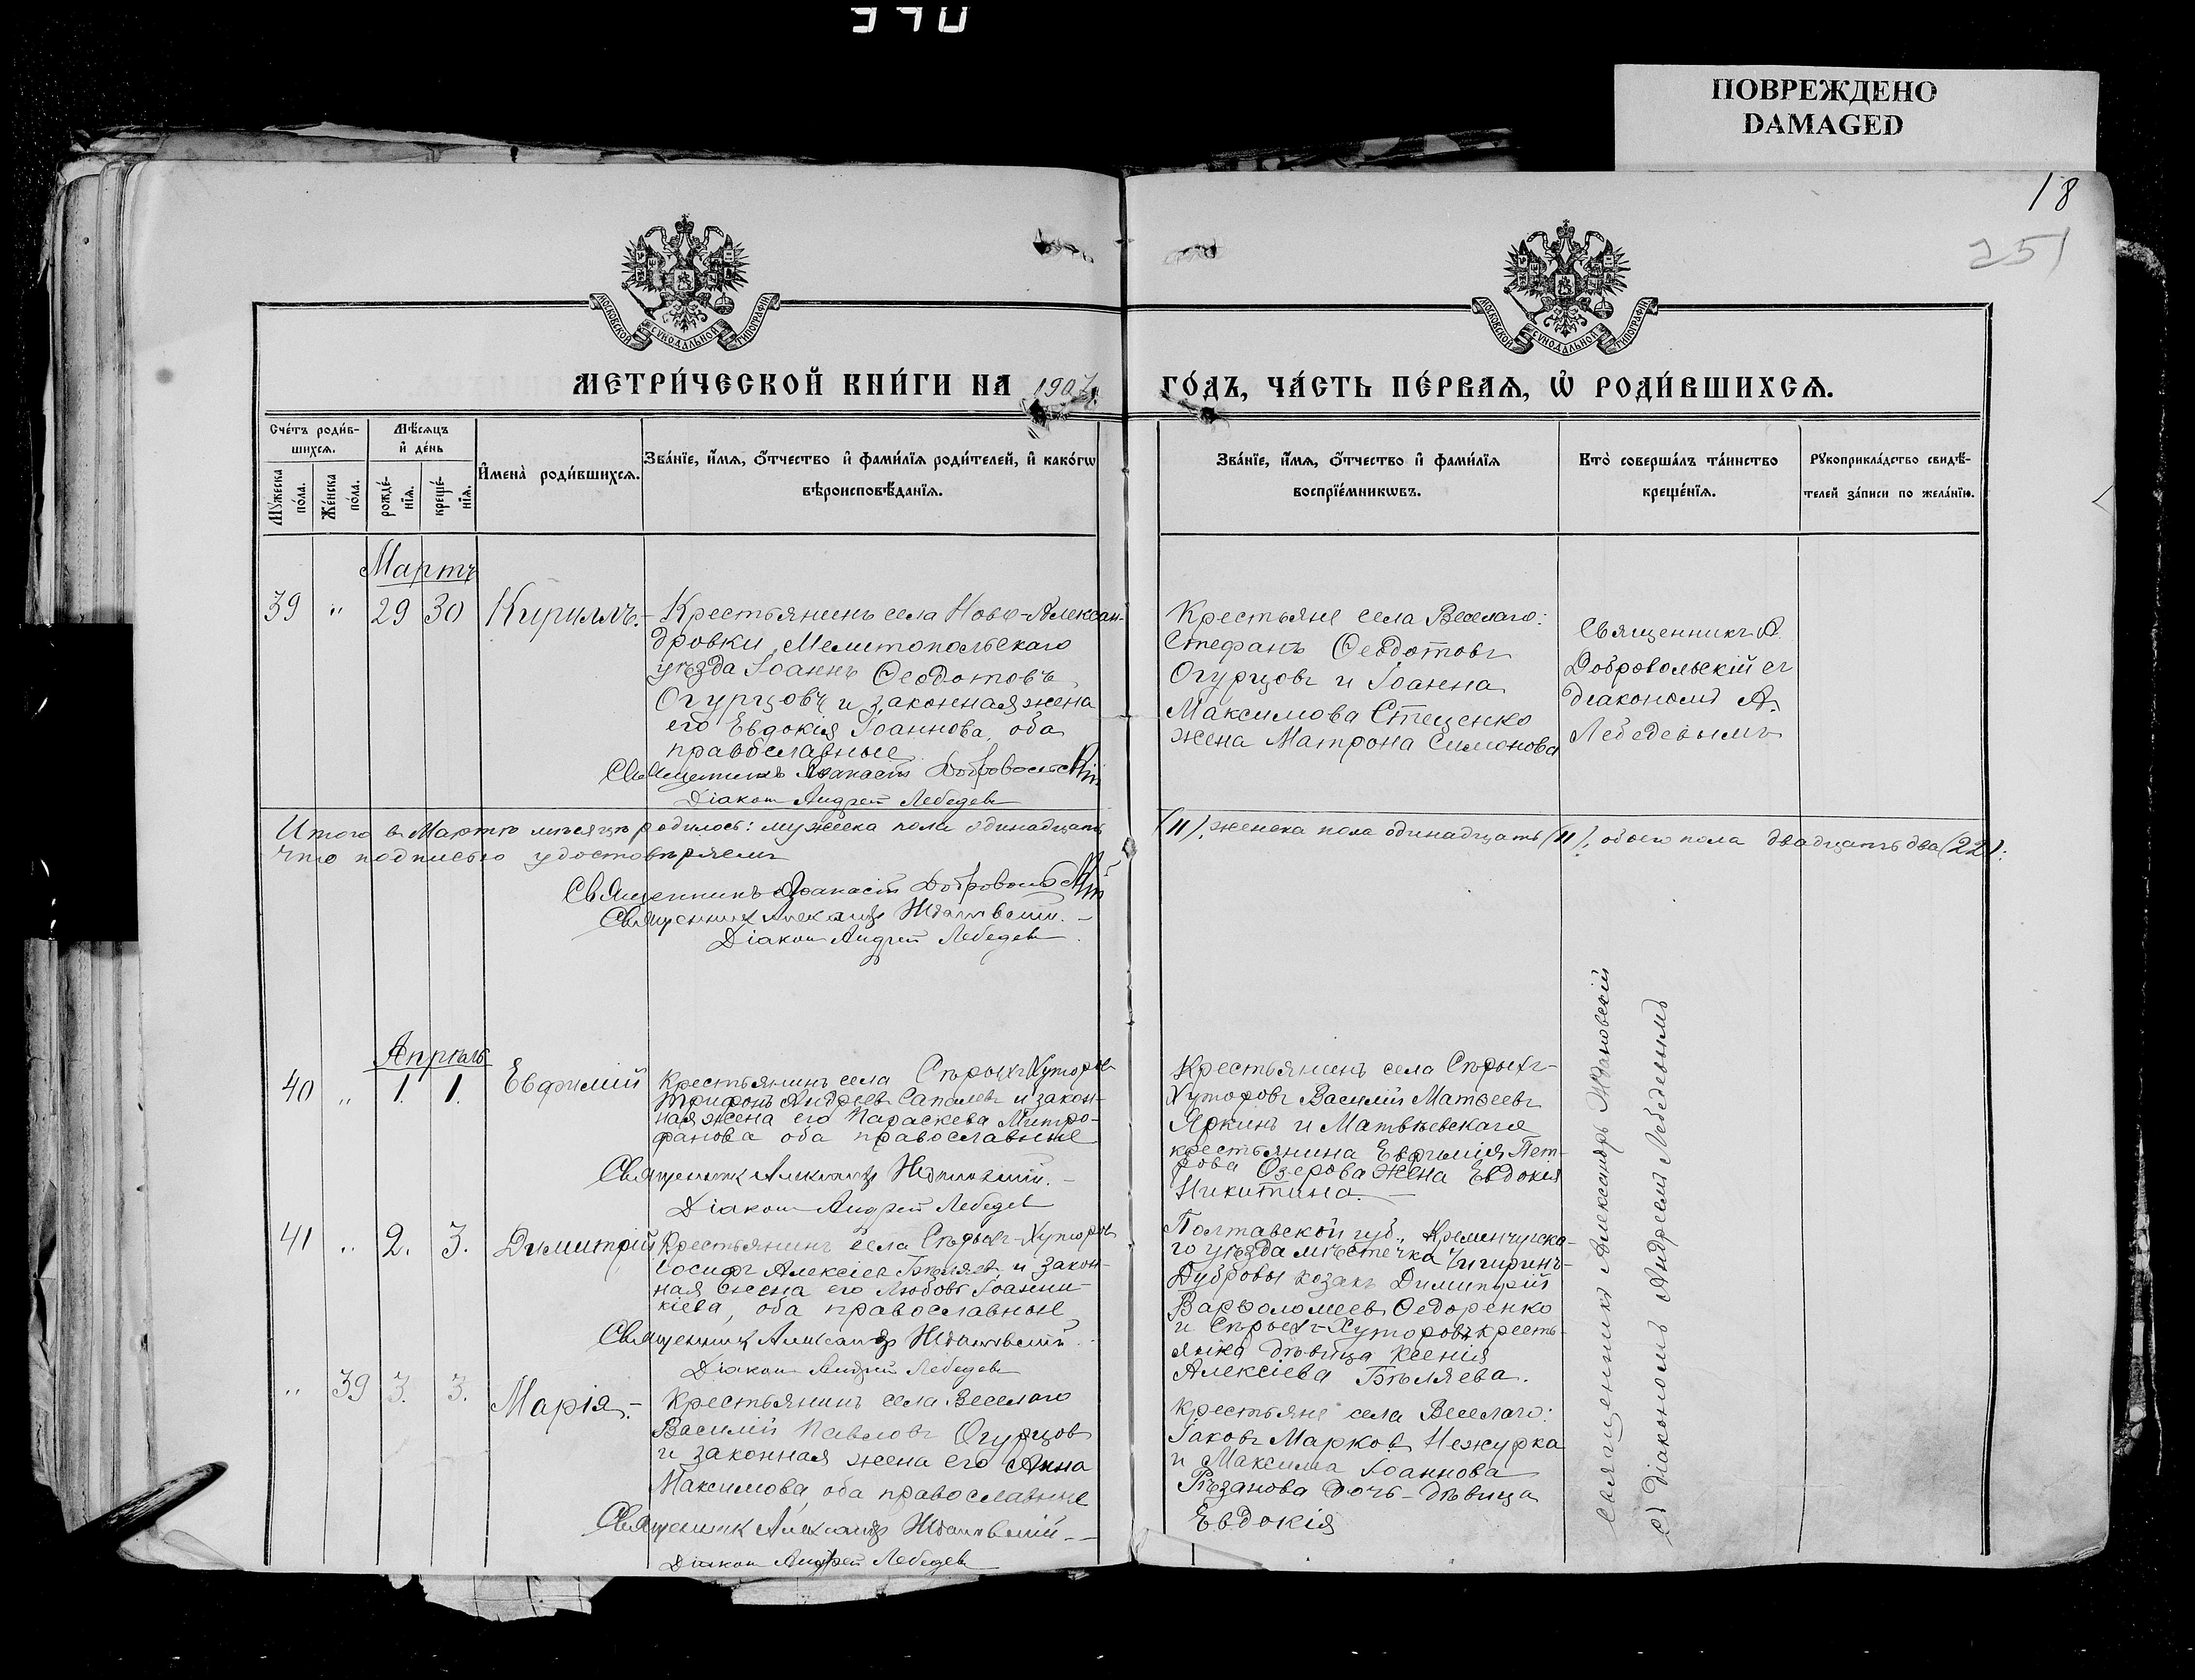 370
ПОВРЕЖДЕНО
DAMAGED
18
251
МОСКОВСКОЙ СѴНОДАЛЬНОЙ ТИПОГРАФІИ
МОСКОВСКОЙ СѴНОДАЛЬНОЙ ТИПОГРАФІИ
МЕТРИ́ЧЕСКОЙ КНИ́ГИ НА 1907 г.
ГО́ДЪ, ЧА́СТЬ ПЕ́РВАѦ, Ѡ҆ РОДИ́ВШИХСѦ.
Сче́тъ роди́в-
шихсѧ.
Мꙋ́жеска по́ла.
Же́нска по́ла.
Мѣ́сѧцъ
и҆ де́нь
рожде́-
нїѧ.
креще́-
нїѧ.
И҆мена̀ роди́вшихсѧ.
Зва́нїе, и҆́мѧ, ѻ҆́тчество и҆ фами́лїѧ роди́телей, и҆ како́гѡ
вѣроисповѣ́данїѧ.
Зва́нїе, и҆́мѧ, ѻ҆́тчество и҆ фами́лїѧ
воспрїе́мникѡвъ.
Кто̀ соверша́лъ та́инство
креще́нїѧ.
Рꙋкоприкла́дство свидѣ́-
телей за́писи по жела́нїю.
Мартъ
39 " 29 30 Кириллъ.-
Крестьянинъ села Ново-Алексан-
дровки, Мелитопольскаго
уѣзда Іоаннъ Ѳеодотовъ
Огурцовъ и законная жена
его Евдокія Іоаннова, оба
православные
Священникъ Аѳанасій Добровольскій
Діаконъ Андрей Лебедевъ
Крестьяне села Веселаго:
Стефанъ Ѳеодотовъ
Огурцовъ и Іоанна
Максимова Стеценко
жена Матрона Симонова
Священникъ А.
Добровольскій съ
діакономъ А.
Лебедевымъ
Итого въ Мартѣ мѣсяцѣ родилось: мужеска пола одинадцать (11), женска пола одинадцать (11), обоего пола двадцать два (22):
Что подписью удостовѣряемъ
Священникъ Аѳанасій Добровольскій
Священникъ Александръ Ждановскій.-
Діаконъ Андрей Лебедевъ.
Апрѣль
40 " 1. 1. Евфимій
Крестьянинъ села Сѣрыхъ Хуторовъ
Трифонъ Андреевъ и закон-
ная жена его Параскева Митро-
фанова оба православные
Священникъ Александръ Ждановскій.-
Діаконъ Андрей Лебедевъ
Крестьянинъ села Сѣрыхъ-
Хуторовъ Василій Матѳеевъ
Яркинъ и Матвѣевскаго
крестьянина Евфимія Пет-
рова Озерова жена Евдокія
Никитина.-
41 " 2. 3. Димитрій
Крестьянинъ села Сѣрыхъ-Хуторовъ
Іосифъ Алексіевъ Бѣляевъ и закон-
ная жена его Любовь Іоанни-
кіева, оба православные
Священникъ Александръ Ждановскій.
Діаконъ Андрей Лебедевъ
Полтавской губ., Кременчугска-
го уѣзда мѣстечка Чигиринъ-
Дубровы козакъ Димитрій
Варѳоломеевъ Ѳедоренко
и Сѣрыхъ-Хуторовъ кресть-
янка дѣвица Ксенія
Алексіева Бѣляева.
" 39 3. 3. Марія.-
Крестьянинъ села Веселаго
Василій Павловъ Огурцовъ
и законная жена его Анна
Максимова, оба православные
Священникъ Александръ Ждановскій.-
Діаконъ Андрей Лебедевъ
Крестьяне села Веселаго:
Іаковъ Марковъ Нежурка
и Максима Іоаннова
Рѣзанова дочь-дѣвица
Евдокія
Священникъ Александръ Ждановскій
съ Діакономъ Андреемъ Лебедевымъ